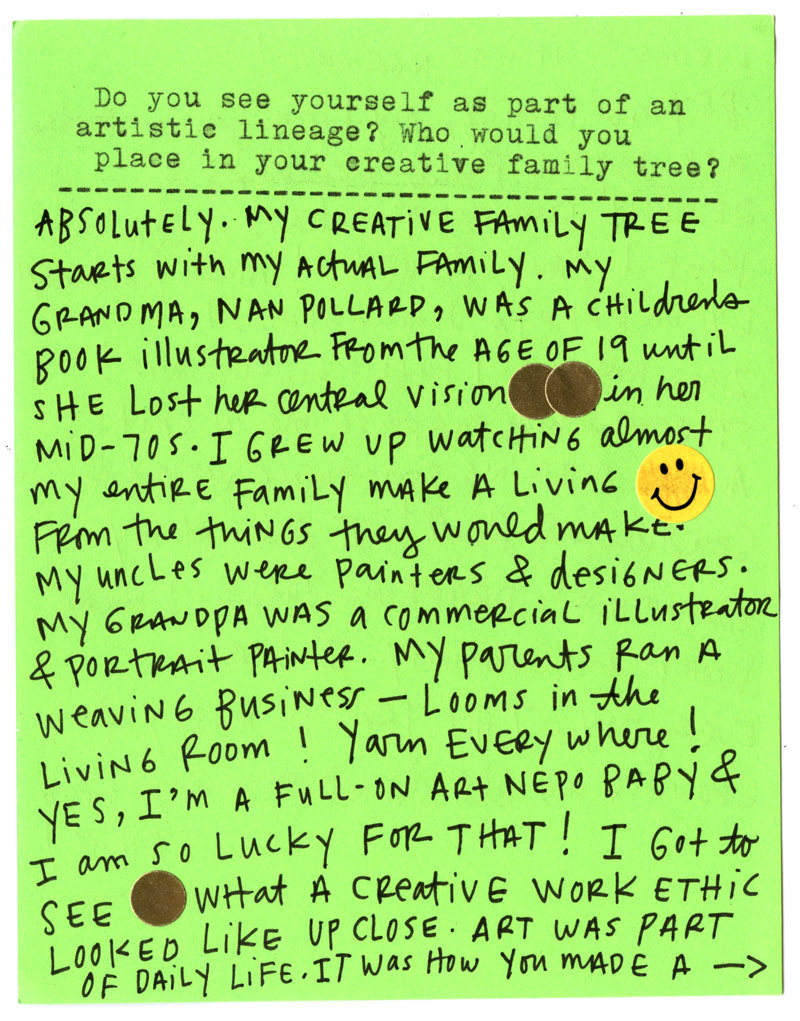 Do you see yourself as part of an
artistic lineage? Who would you
place in your creative family tree?
ABSOLUTELY. MY CREATIVE FAMILY TREE
STARTS WITH MY ACTUAL FAMILY. MY
GRANDMA, NAN POLLARD, WAS A CHILDREN'S
BOOK ILLUSTRATOR FROM THE AGE OF 19 UNTIL
SHE LOST HER CENTRAL VISION IN HER
MID-70S. I GREW UP WATCHING ALMOST
MY ENTIRE FAMILY MAKE A LIVING
FROM THE THINGS THEY WOULD MAKE.
MY UNCLES WERE PAINTERS & DESIGNERS.
MY GRANDPA WAS A COMMERCIAL ILLUSTRATOR
& PORTRAIT PAINTER. MY PARENTS RAN A
WEAVING BUSINESS — LOOMS IN THE
LIVING ROOM! YARN EVERYWHERE!
YES, I'M A FULL-ON ART NEPO BABY &
I AM SO LUCKY FOR THAT! I GOT TO
SEE WHAT A CREATIVE WORK ETHIC
LOOKED LIKE UP CLOSE. ART WAS PART
OF DAILY LIFE. IT WAS HOW YOU MADE A →